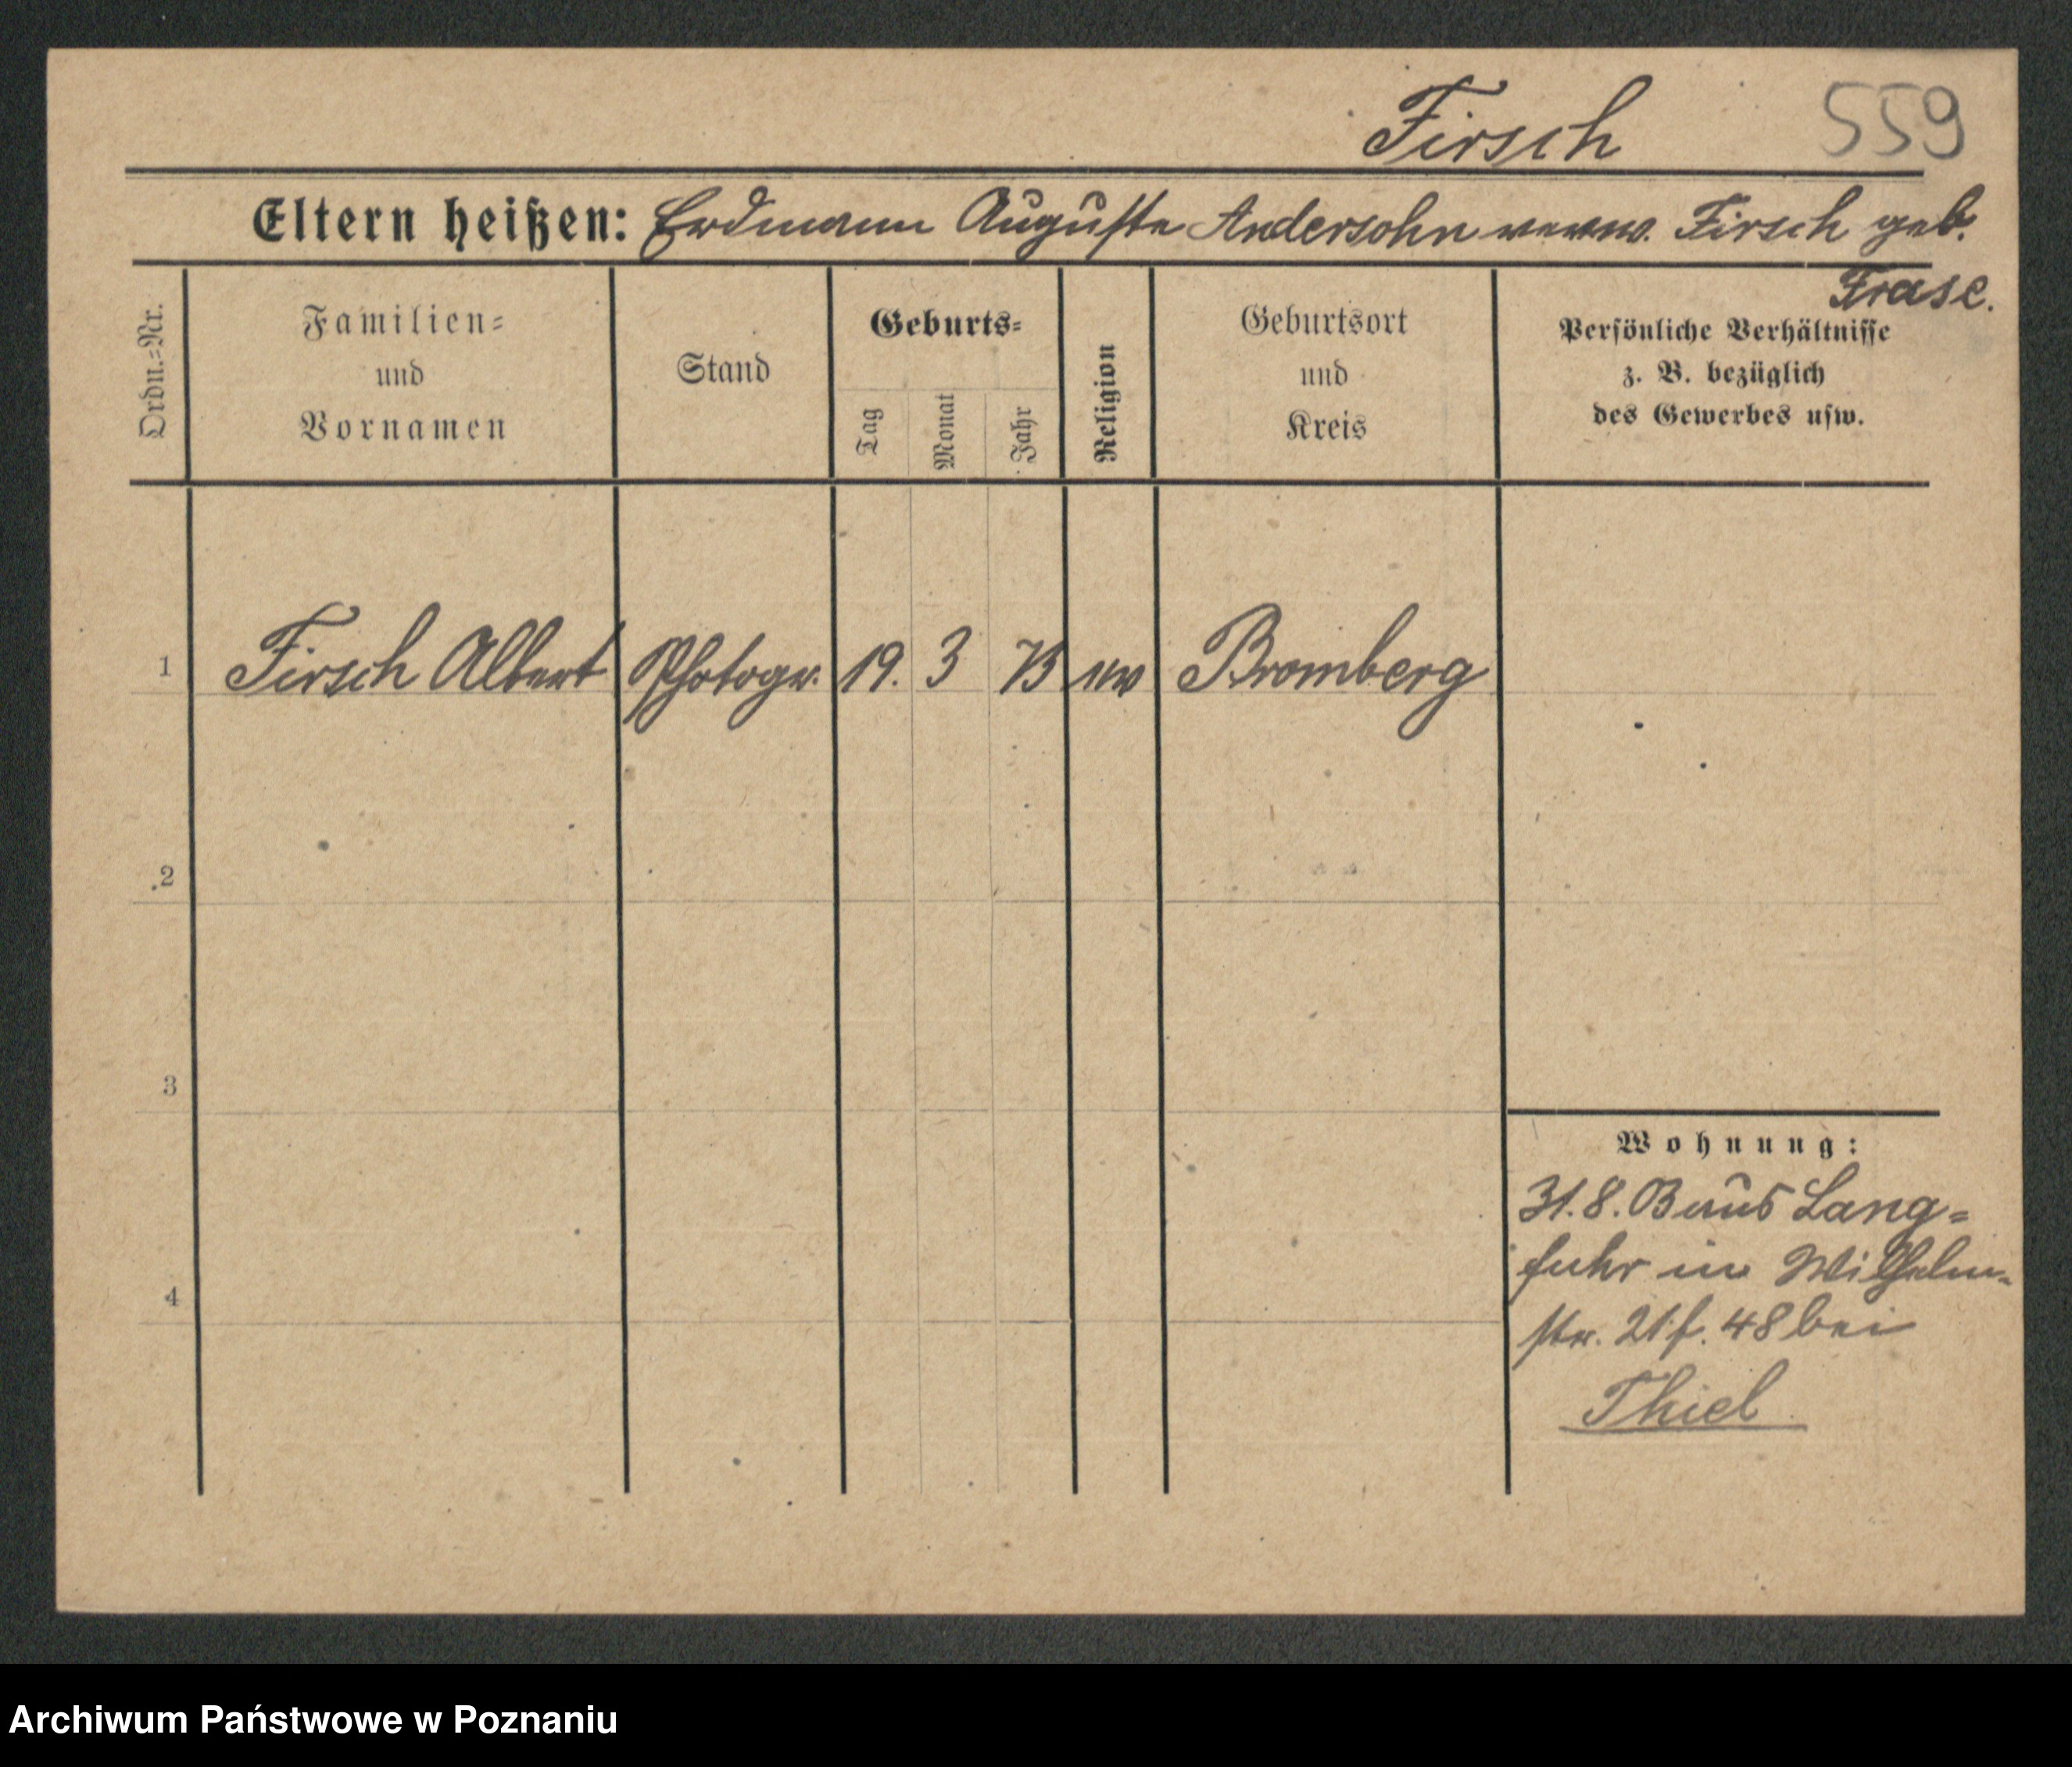 Firsch 559
Eltern heißen: Erdmann Auguste Andersohn verw. Firsch geb.
Frase.
Ordn.=Nr.
Familien=
und
Vornamen
Stand
Geburts=
Tag
Monat
Jahr
Religion
Geburtsort
und
Kreis
Persönliche Verhältnisse
z. B. bezüglich
des Gewerbes usw.
1 Firsch Albert Photogr. 19. 3 73 ew Bromberg
2
3
4
Wohnung:
31.8.03 aus Lang=
fuhr in Wilhelm=
str. 21 f. 48 bei
Thiel
Archiwum Państwowe w Poznaniu